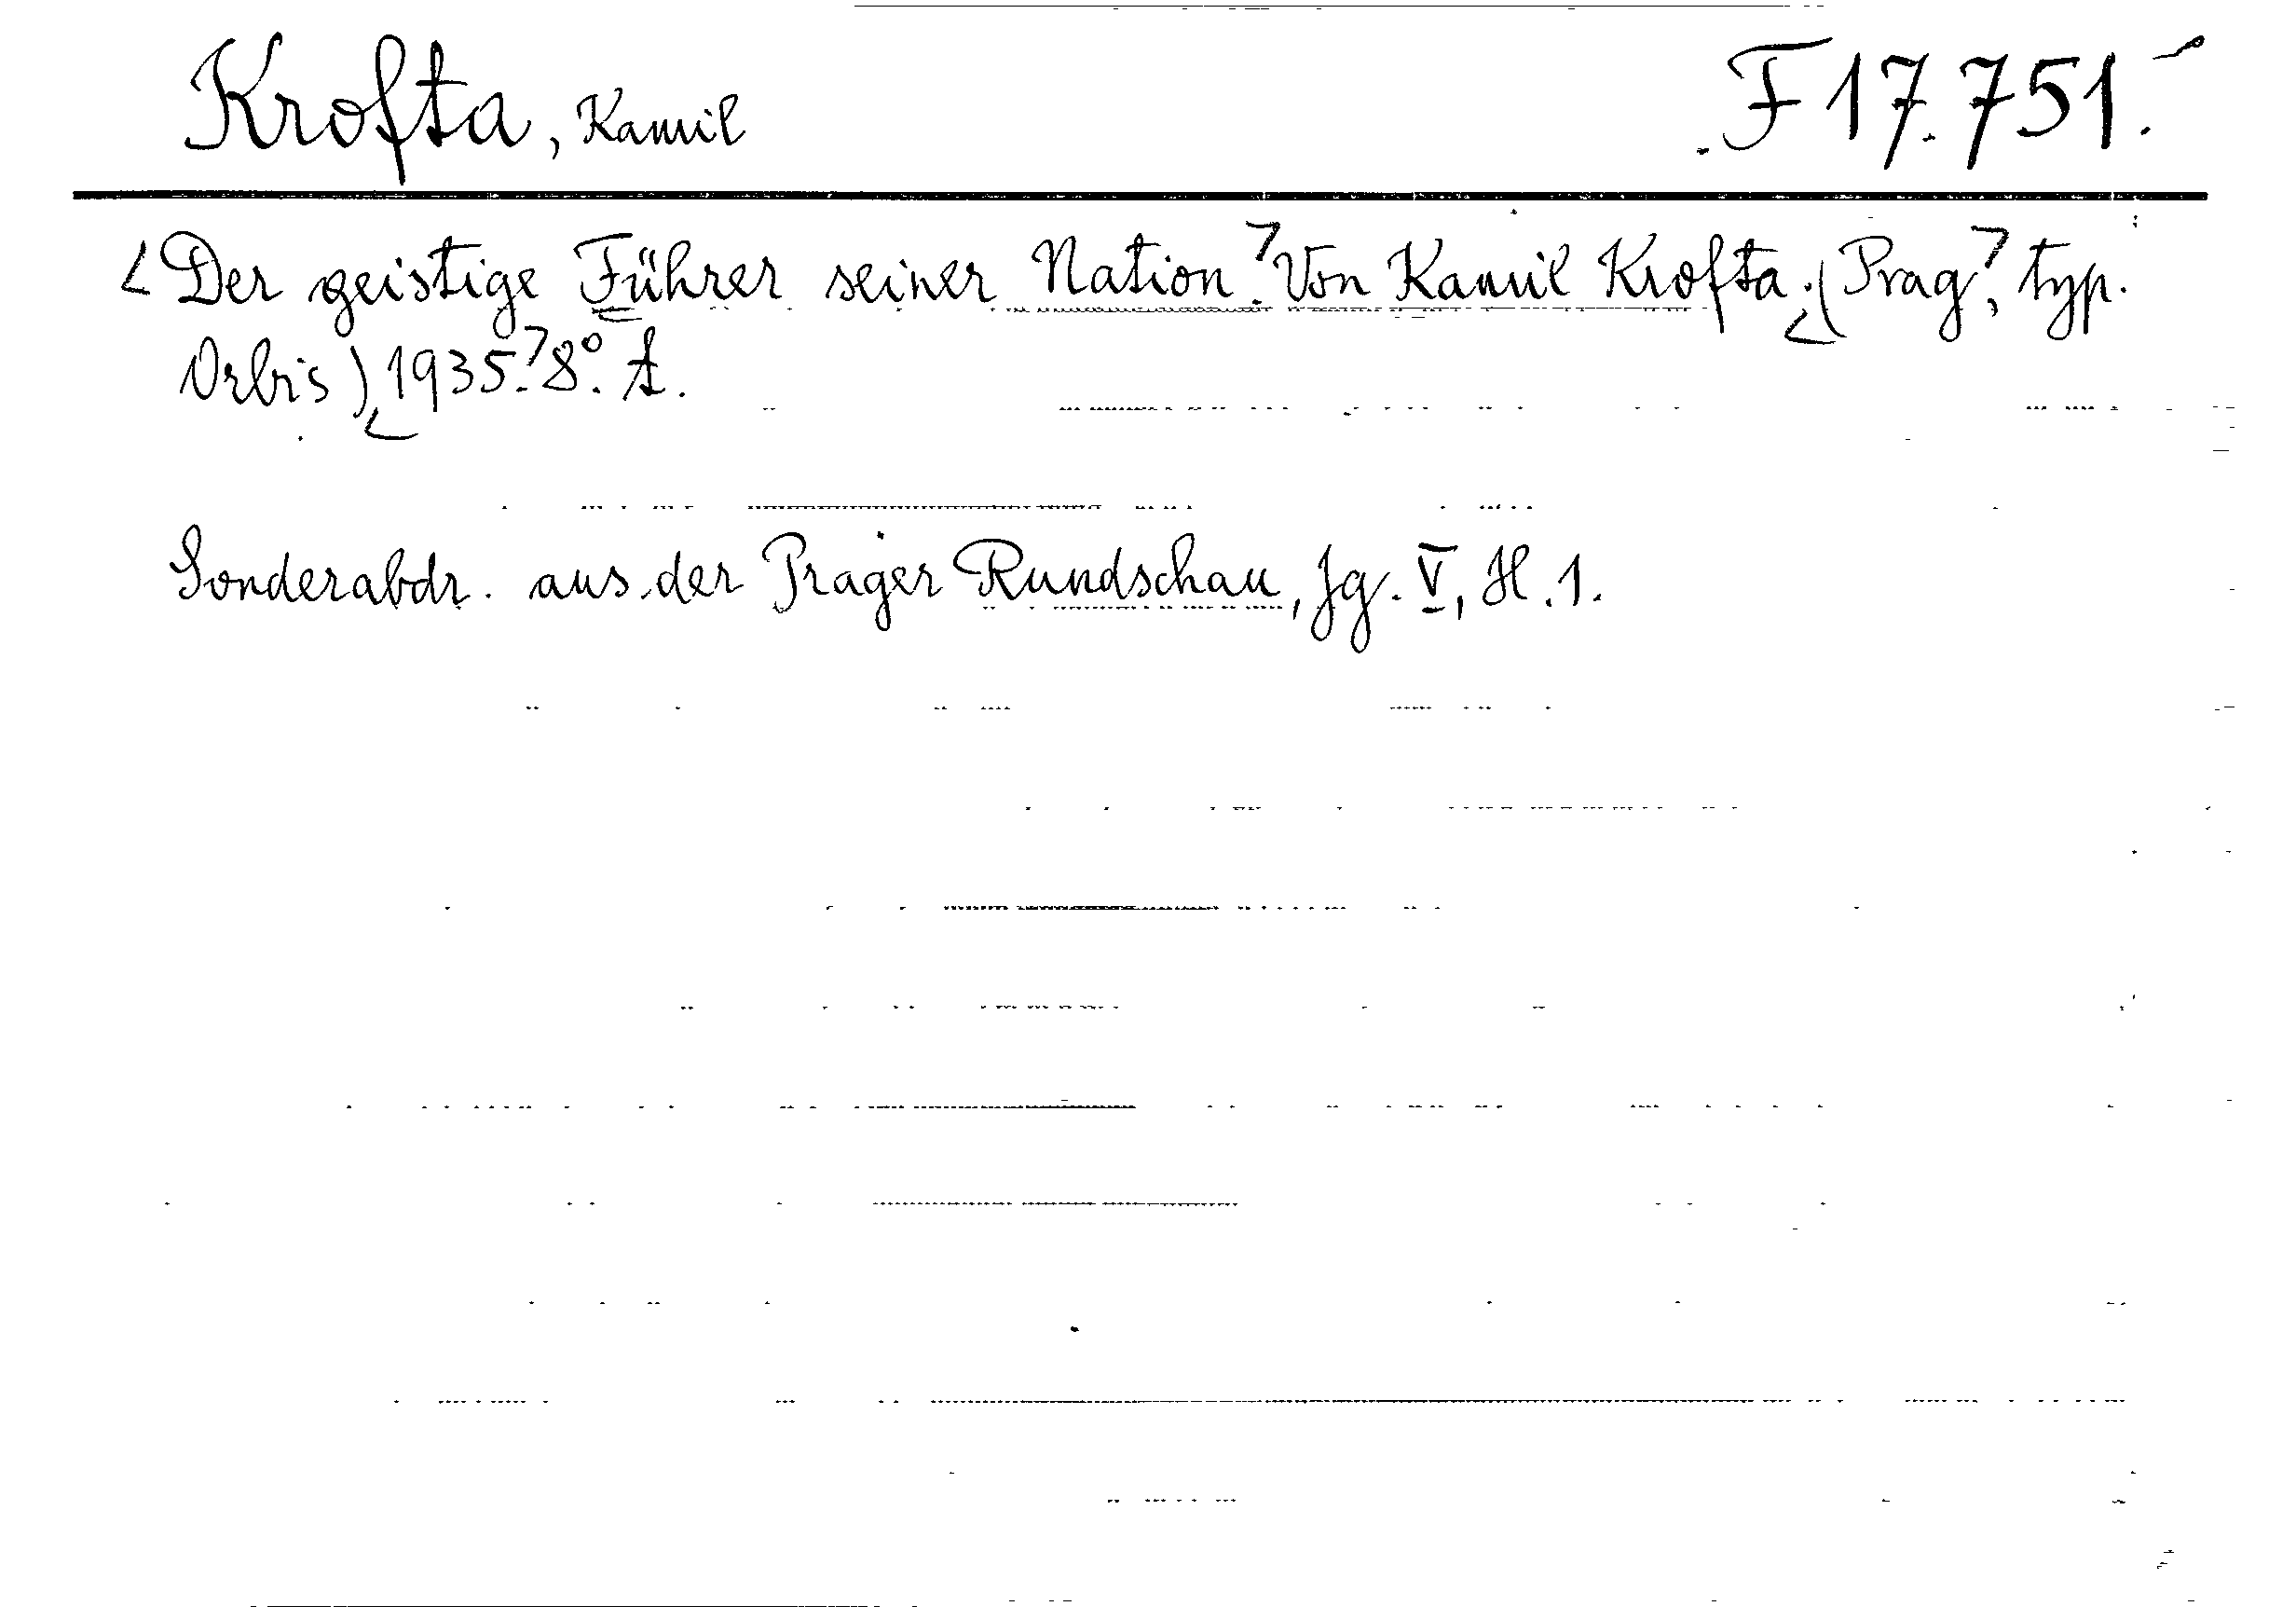 Krofta, Kamil F 17.751.
<Der geistige Führer seiner Nation.> Von Kamil Krofta. <(Prag>, typ.
Orbis) <1935.> 8°. A.
Sonderabdr. aus der Prager Rundschau, Jg. V, H. 1.